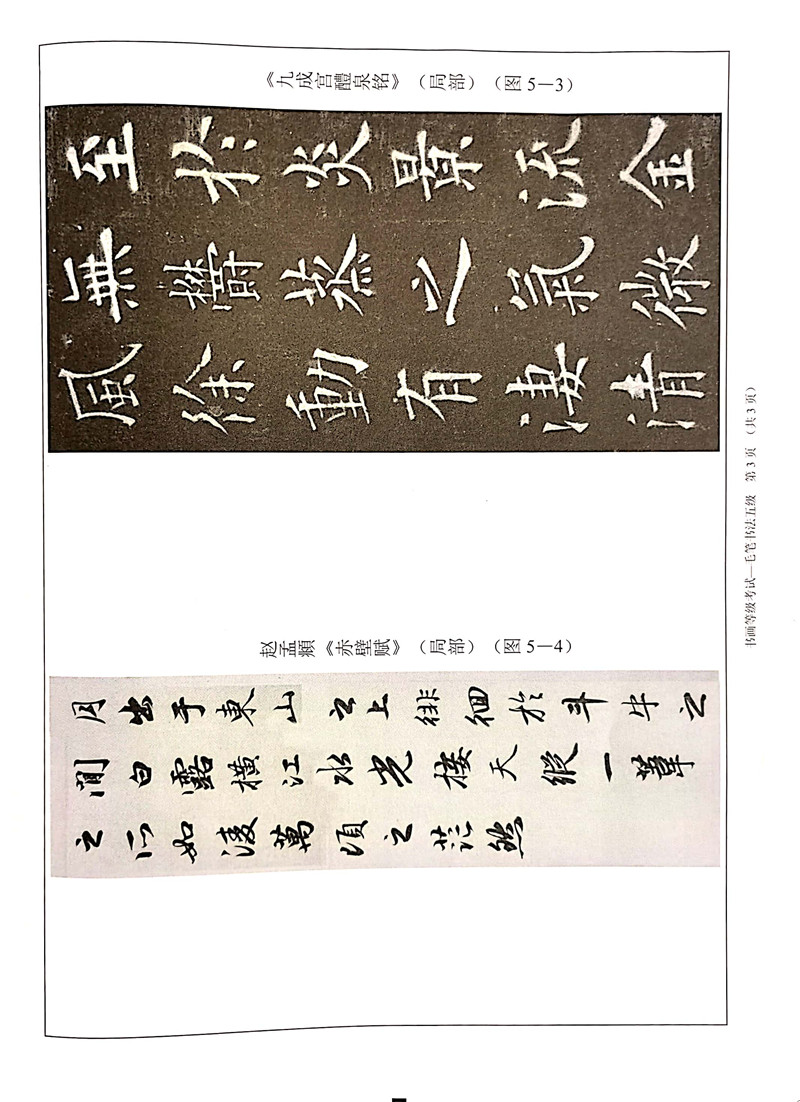 《九成宫醴泉铭》（局部）（图5—3）
至於炎景流金
無鬱蒸之氣微
風徐動有淒清
赵孟頫《赤壁赋》（局部）（图5—4）
月出于東山之上徘徊於斗牛之
閒白露橫江水光接天縱一葦
之所如凌萬頃之茫然
书画等级考试—毛笔书法五级 第3页（共3页）